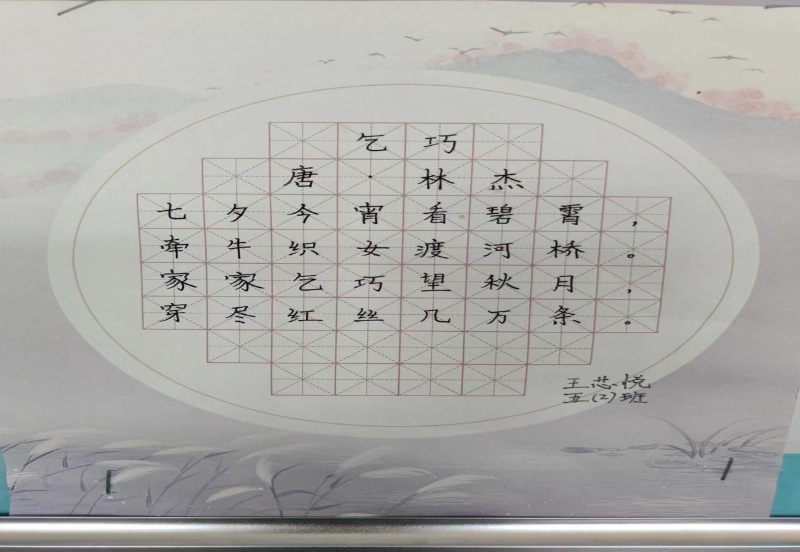 乞巧
唐·林杰
七夕今宵看碧霄，
牵牛织女渡河桥。
家家乞巧望秋月，
穿尽红丝几万条。
王芯悦
五(2)班